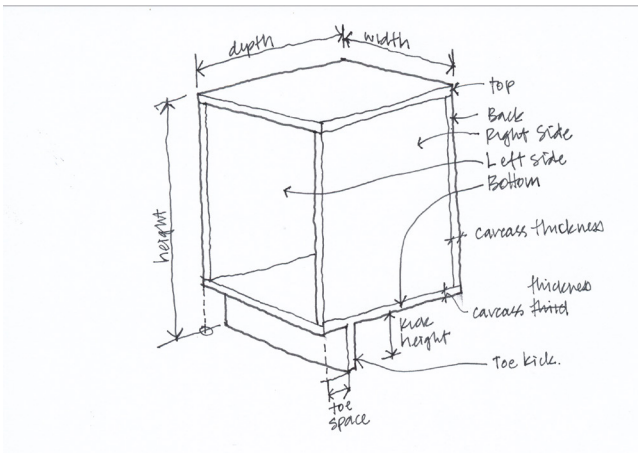 depth
width
top
Back
Right Side
Left side
Bottom
height
carcass thickness
thickness
carcass third
kick
height
Toe kick.
toe
space